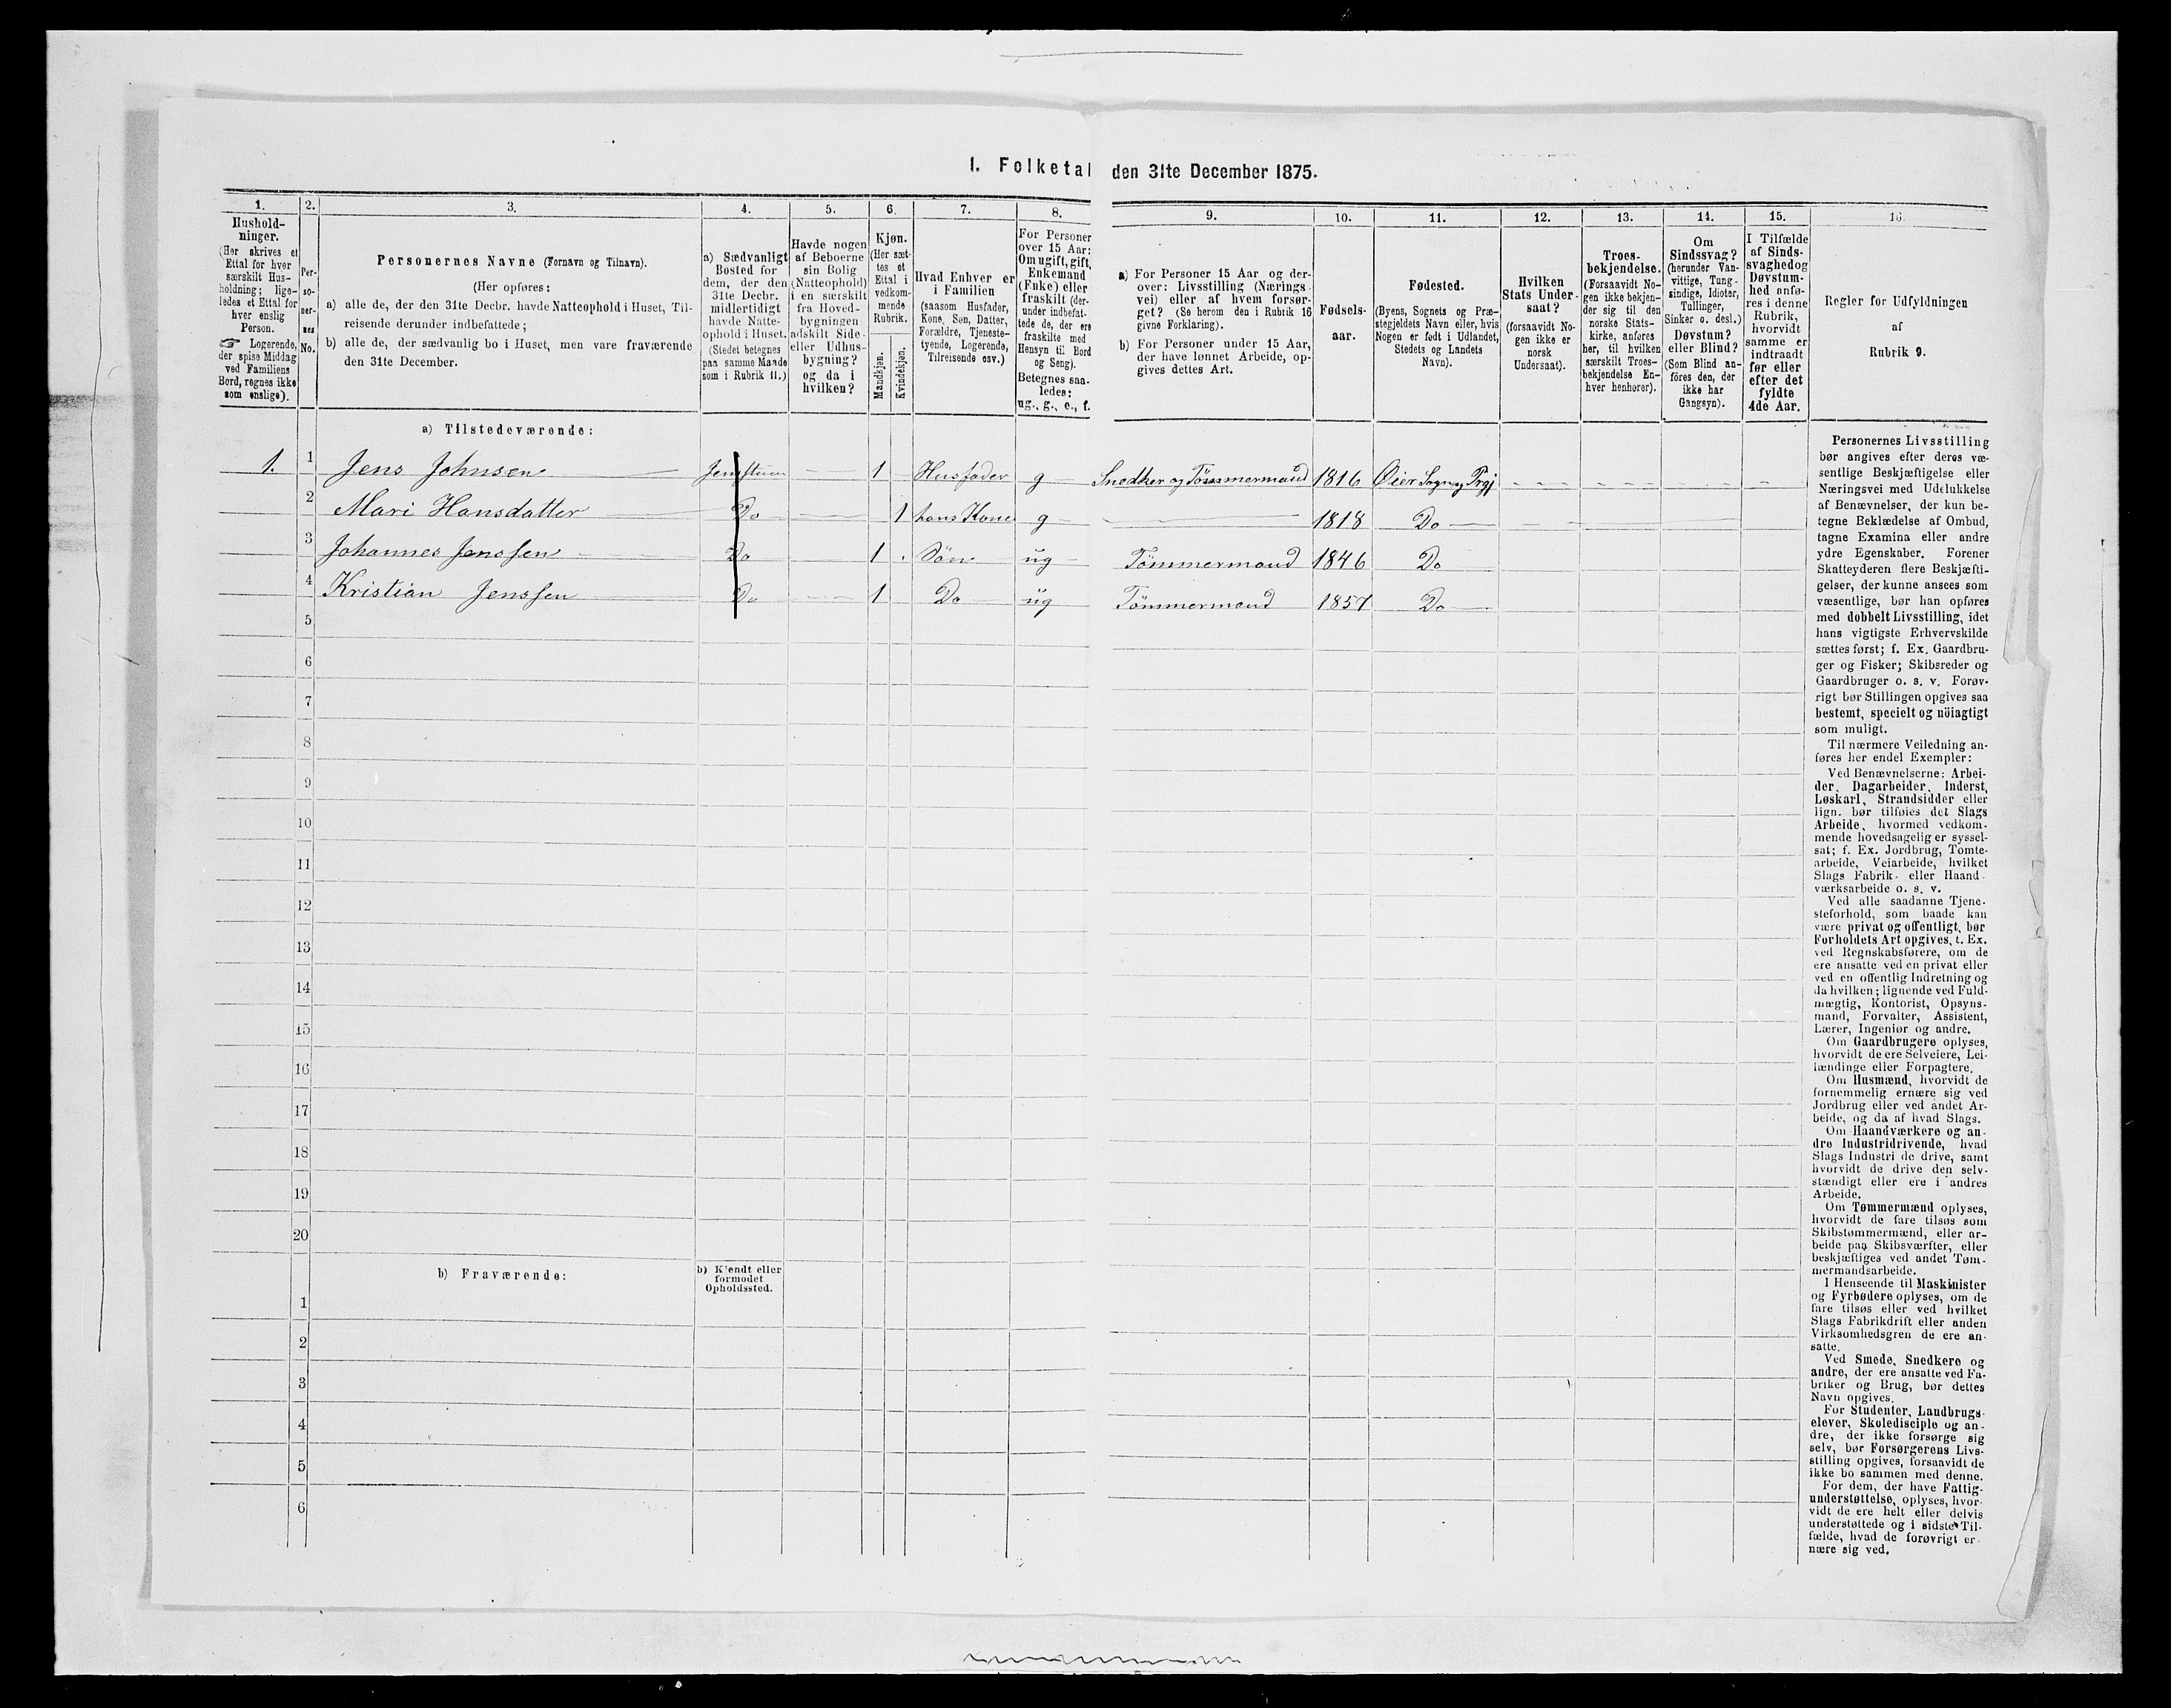 1. Folketal den 31te December 1875.
1.
Hushold-
ninger.
(Her skrives et
Ettal for hver
særskilt Hus-
holdning; lige-
ledes et Ettal for
hver enslig
Person.
☞ Logerende,
der spise Middag
ved Familiens
Bord, regnes ikke
som enslige).
2.
Per-
so-
ner-
nes
No.
3.
Personernes Navne (Fornavn og Tilnavn).
(Her opføres:
a) alle de, der den 31te Decbr. havde Natteophold i Huset, Til-
reisende derunder indbefattede;
b) alle de, der sædvanlig bo i Huset, men vare fraværende
den 31te December.
4.
a) Sædvanligt
Bosted for
dem, der den
31te Decbr.
midlertidigt
havde Natte-
ophold i Huset.
(Stedet betegnes
paa samme Maade
som i Rubrik 11.)
5.
Havde nogen
af Beboerne
sin Bolig
(Natteophold)
i en særskilt
fra Hoved-
bygningen
adskilt Side-
eller Udhus-
bygning?
og da i
hvilken?
6.
Kjøn.
(Her sæt-
tes et
Ettal i
vedkom-
mende
Rubrik.
Mandkjøn.
Kvindekjøn.
7.
Hvad Enhver er
i Familien
(saasom Husfader,
Kone, Søn, Datter,
Forældre, Tjeneste-
tyende, Logerende,
Tilreisende osv.)
8.
For Personer
over 15 Aar:
Om ugift, gift,
Enkemand
(Enke) eller
fraskilt (der-
under indbefat-
tede de, der ere
fraskilte med
Hensyn til Bord
og Seng).
Betegnes saa-
ledes:
ug., g., e., f.
9.
a) For Personer 15 Aar og der-
over: Livsstilling (Nærings-
vei) eller af hvem forsør-
get? (Se herom den i Rubrik 16
givne Forklaring).
b) For Personer under 15 Aar,
der have lønnet Arbeide, op-
gives dettes Art.
10.
Fødsels-
aar.
11.
Fødested.
(Byens, Sognets og Præ-
stegjeldets Navn eller, hvis
Nogen er født i Udlandet,
Stedets og Landets
Navn).
12.
Hvilken
Stats Under-
saat?
(forsaavidt No-
gen ikke er
norsk
Undersaat).
13.
Troes-
bekjendelse.
(Forsaavidt No-
gen ikke bekjen-
der sig til den
norske Stats-
kirke, anføres
her, til hvilken
særskilt Troes-
bekjendelse En-
hver henhører).
14.
Om
Sindssvag?
(herunder Van-
vittige, Tung-
sindige, Idioter,
Tullinger,
Sinker o. desl.)
Døvstum?
eller Blind?
(Som Blind an-
føres den, der
ikke har
Gangsyn).
15.
I Tilfælde
af Sinds-
svaghed og
Døvstum-
hed anfø-
res i denne
Rubrik,
hvorvidt
samme er
indtraadt
før eller
efter det
fyldte
4de Aar.
16.
Regler for Udfyldningen
af
Rubrik 9.
a) Tilstedeværende:
1. 1 Jens Johnsen 1 Husfader g Snedker og Tömmermand 1816 Øier Sogn og Prgj
2 Mari Hansdatter Do 1 hans Kone g 1818 Do
3 Johannes Jenssen Do 1 Sön ug Tömmermand 1846 Do
4 Kristian Jenssen Do 1 Do ug Tömmermand 1857 Do
5
6
7
8
9
10
11
12
13
14
15
16
17
18
19
20
b) Fraværende:
b) Kjendt eller
formodet
Opholdssted.
1
2
3
4
5
6
Personernes Livsstilling
bør angives efter deres væ-
sentlige Beskjæftigelse eller
Næringsvei med Udelukkelse
af Benævnelser, der kun be-
tegne Beklædelse af Ombud,
tagne Examina eller andre
ydre Egenskaber. Forener
Skatteyderen flere Beskjæfti-
gelser, der kunne ansees som
væsentlige, bør han opføres
med dobbelt Livsstilling, idet
hans vigtigste Erhvervskilde
sættes først; f. Ex. Gaardbru-
ger og Fisker; Skibsreder og
Gaardbruger o. s. v. Forøv-
rigt bør Stillingen opgives saa
bestemt, specielt og nöiagtigt
som muligt.
Til nærmere Veiledning an-
føres her endel Exempler:
Ved Benævnelserne: Arbei-
der, Dagarbeider, Inderst,
Løskarl, Strandsidder eller
lign. bør tilføies det Slags
Arbeide, hvormed vedkom-
mende hovedsagelig er syssel-
sat; f. Ex. Jordbrug, Tomte-
arbeide, Veiarbeide, hvilket
Slags Fabrik- eller Haand-
værksarbeide o. s. v.
Ved alle saadanne Tjene-
steforhold, som baade kan
være privat og offentligt, bør
Forholdets Art opgives, t. Ex.
ved Regnskabsførere, om de
ere ansatte ved en privat eller
ved en offentlig Indretning og
da hvilken; lignende ved Fuld-
mægtig, Kontorist, Opsyns-
mand, Forvalter, Assistent,
Lærer, Ingeniør og andre.
Om Gaardbrugere oplyses,
hvorvidt de ere Selveiere, Lei-
lændinge eller Forpagtere.
Om Husmænd, hvorvidt de
fornemmelig ernære sig ved
Jordbrug eller ved andet Ar-
beide, og da af hvad Slags.
Om Haandværkere og an-
dre Industridrivende, hvad
Slags Industri de drive, samt
hvorvidt de drive den selv-
stændigt eller ere i andres
Arbeide.
Om Tømmermænd oplyses,
hvorvidt de fare tilsøs som
Skibstømmermænd, eller ar-
beide paa Skibsværfter, eller
beskjæftiges ved andet Tøm-
mermandsarbeide.
I Henseende til Maskinister
og Fyrbødere oplyses, om de
fare tilsøs eller ved hvilket
Slags Fabrikdrift eller anden
Virksomhedsgren de ere an-
satte.
Ved Smede, Snedkere og
andre, der ere ansatte ved Fa-
briker og Brug, bør dettes
Navn opgives.
For Studenter, Landbrugs-
elever, Skoledisciple og an-
dre, der ikke forsørge sig
selv, bør Forsørgerens Livs-
stilling opgives, forsaavidt de
ikke bo sammen med denne.
For dem, der have Fattig-
understøttelse, oplyses, hvor-
vidt de ere helt eller delvis
understøttede og i sidste Til-
fælde, hvad de forøvrigt er-
nære sig ved.